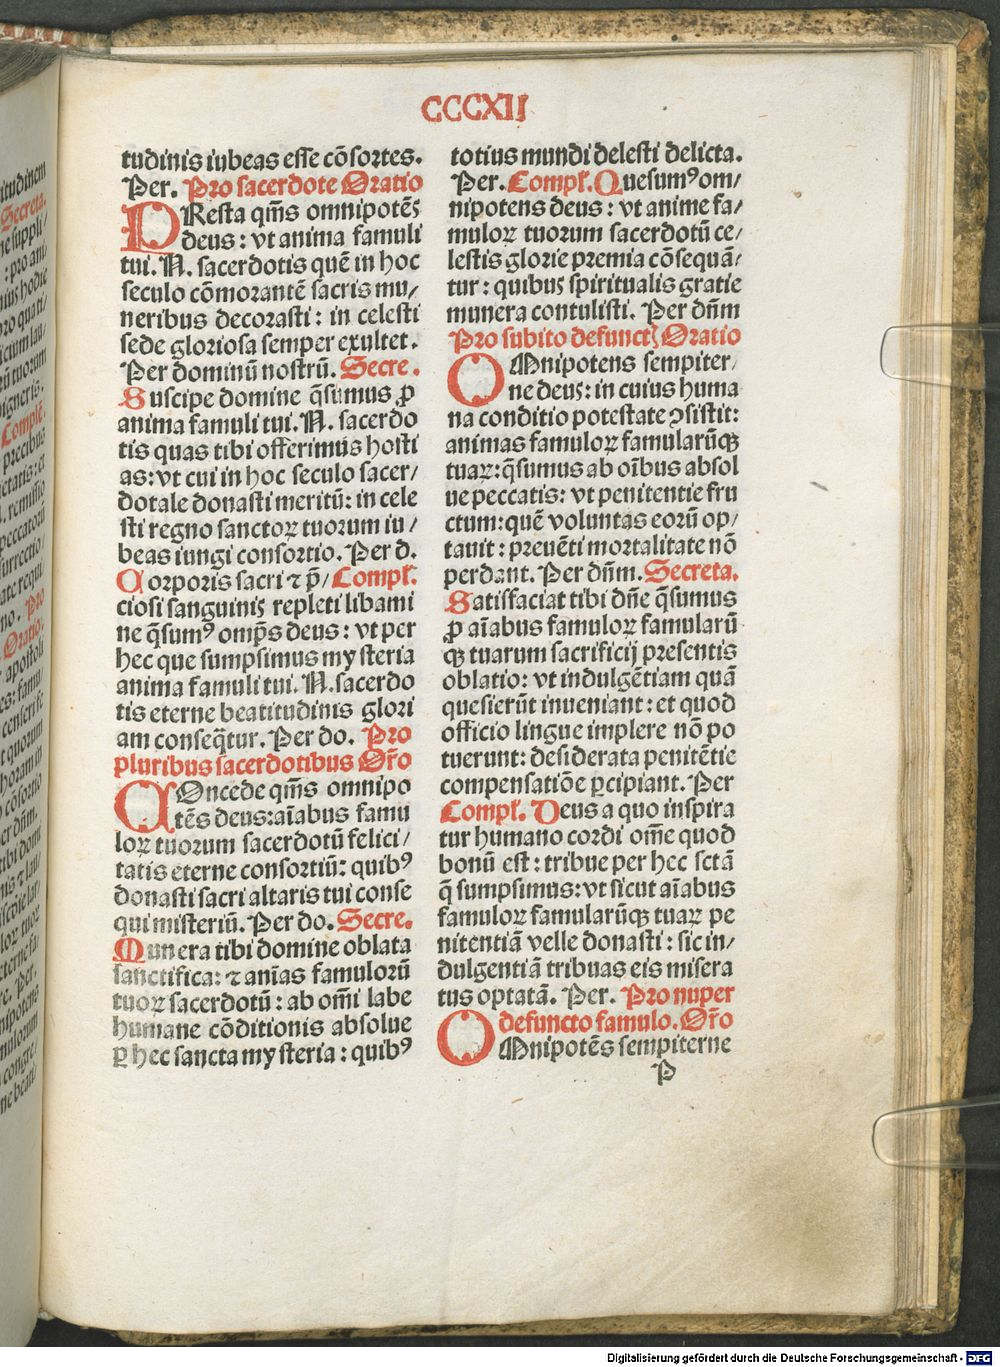 CCCXII
tudinis iubeas esse cõsortes.
Per. Pro sacerdote Oratio
PResta qm̃s omnipotẽs
deus: vt anima famuli
tui. N. sacerdotis quẽ in hoc
seculo cõmorantẽ sacris mu/
neribus decorasti: in celesti
sede gloriosa semper exultet.
Per dominũ nostrũ. Secre.
Suscipe domine q̃sumus ꝓ
anima famuli tui. N. sacerdo
tis quas tibi offerimus hosti
as: vt cui in hoc seculo sacer/
dotale donasti meritũ: in cele
sti regno sanctoꝝ tuorum iu/
beas iungi consortio. Per d.
Corporis sacri ⁊ p̃/ Compl̃.
ciosi sanguinis repleti libami
ne q̃sumꝰ omp̃s deus: vt per
hec que sumpsimus mysteria
anima famuli tui. N. sacerdo
tis eterne beatitudinis glori
am conseq̃tur. Per do. Pro
pluribus sacerdotibus Or̃o
COncede qm̃s omnipo
tẽs deus: aĩabus famu
loꝝ tuorum sacerdotũ felici/
tatis eterne consortiũ: quibꝰ
donasti sacri altaris tui conse
qui misteriũ. Per do. Secre.
Munera tibi domine oblata
sanctifica: ⁊ anĩas famulorũ
tuoꝝ sacerdotũ: ab om̃i labe
humane cõditionis absolue
ꝑ hec sancta mysteria: quibꝰ
totius mundi delesti delicta.
Per. Compl̃. Quesumꝰ om/
nipotens deus: vt anime fa/
muloꝝ tuorum sacerdotũ ce/
lestis glorie premia cõsequã/
tur: quibus spiritualis gratie
munera contulisti. Per dñm
Pro subito defunctꝭ Oratio
OMnipotens sempiter/
ne deus: in cuius huma
na conditio potestate ꝯsistit:
animas famuloꝝ famularũꝙ
tuaꝝ: q̃sumus ab oĩbus absol
ue peccatis: vt penitentie fru
ctum: quẽ voluntas eorũ op/
tauit: preuẽti mortalitate nõ
perdant. Per dñm. Secreta.
Satisfaciat tibi dñe q̃sumus
ꝓ aĩabus famuloꝝ famularũ
ꝙ tuarum sacrificij presentis
oblatio: vt indulgẽtiam quã
quesierũt inueniant: et quod
officio lingue implere nõ po
tuerunt: desiderata penitẽtie
compensatiõe ꝑcipiant. Per
Compl̃. Deus a quo inspira
tur humano cordi om̃e quod
bonũ est: tribue per hec sctã
q̃ sumpsimus: vt sicut aĩabus
famuloꝝ famularũꝙ tuaꝝ pe
nitentiã velle donasti: sic in/
dulgentiã tribuas eis misera
tus optatã. Per. Pro nuper
defuncto famulo. Or̃o
OMnipotẽs sempiterne
P
Digitalisierung gefördert durch die Deutsche Forschungsgemeinschaft - DFG